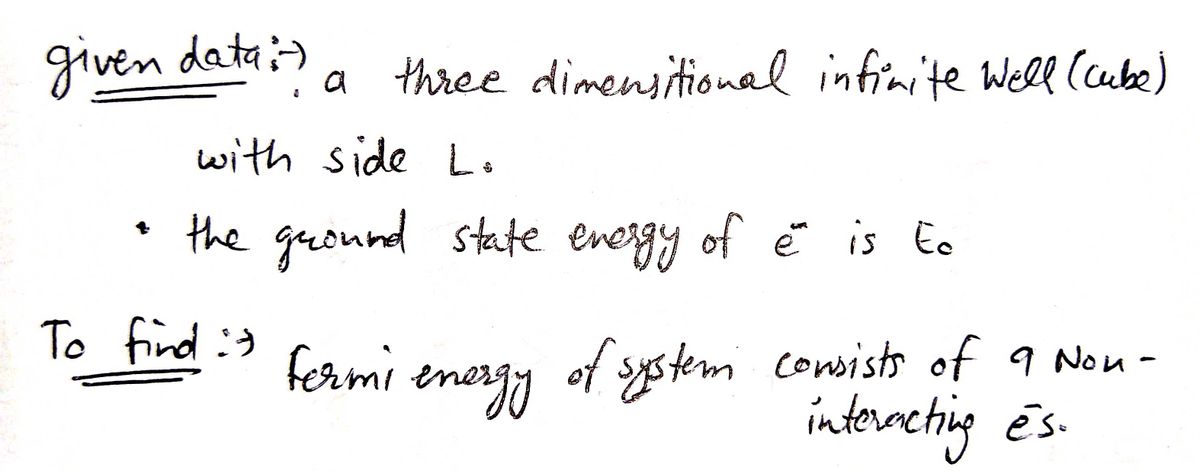 given data :→ a three dimensitional infinite well (cube)
with side L.
• the ground state energy of e⁻ is E₀
To find :→ fermi energy of system consists of 9 Non -
interacting e⁻s.